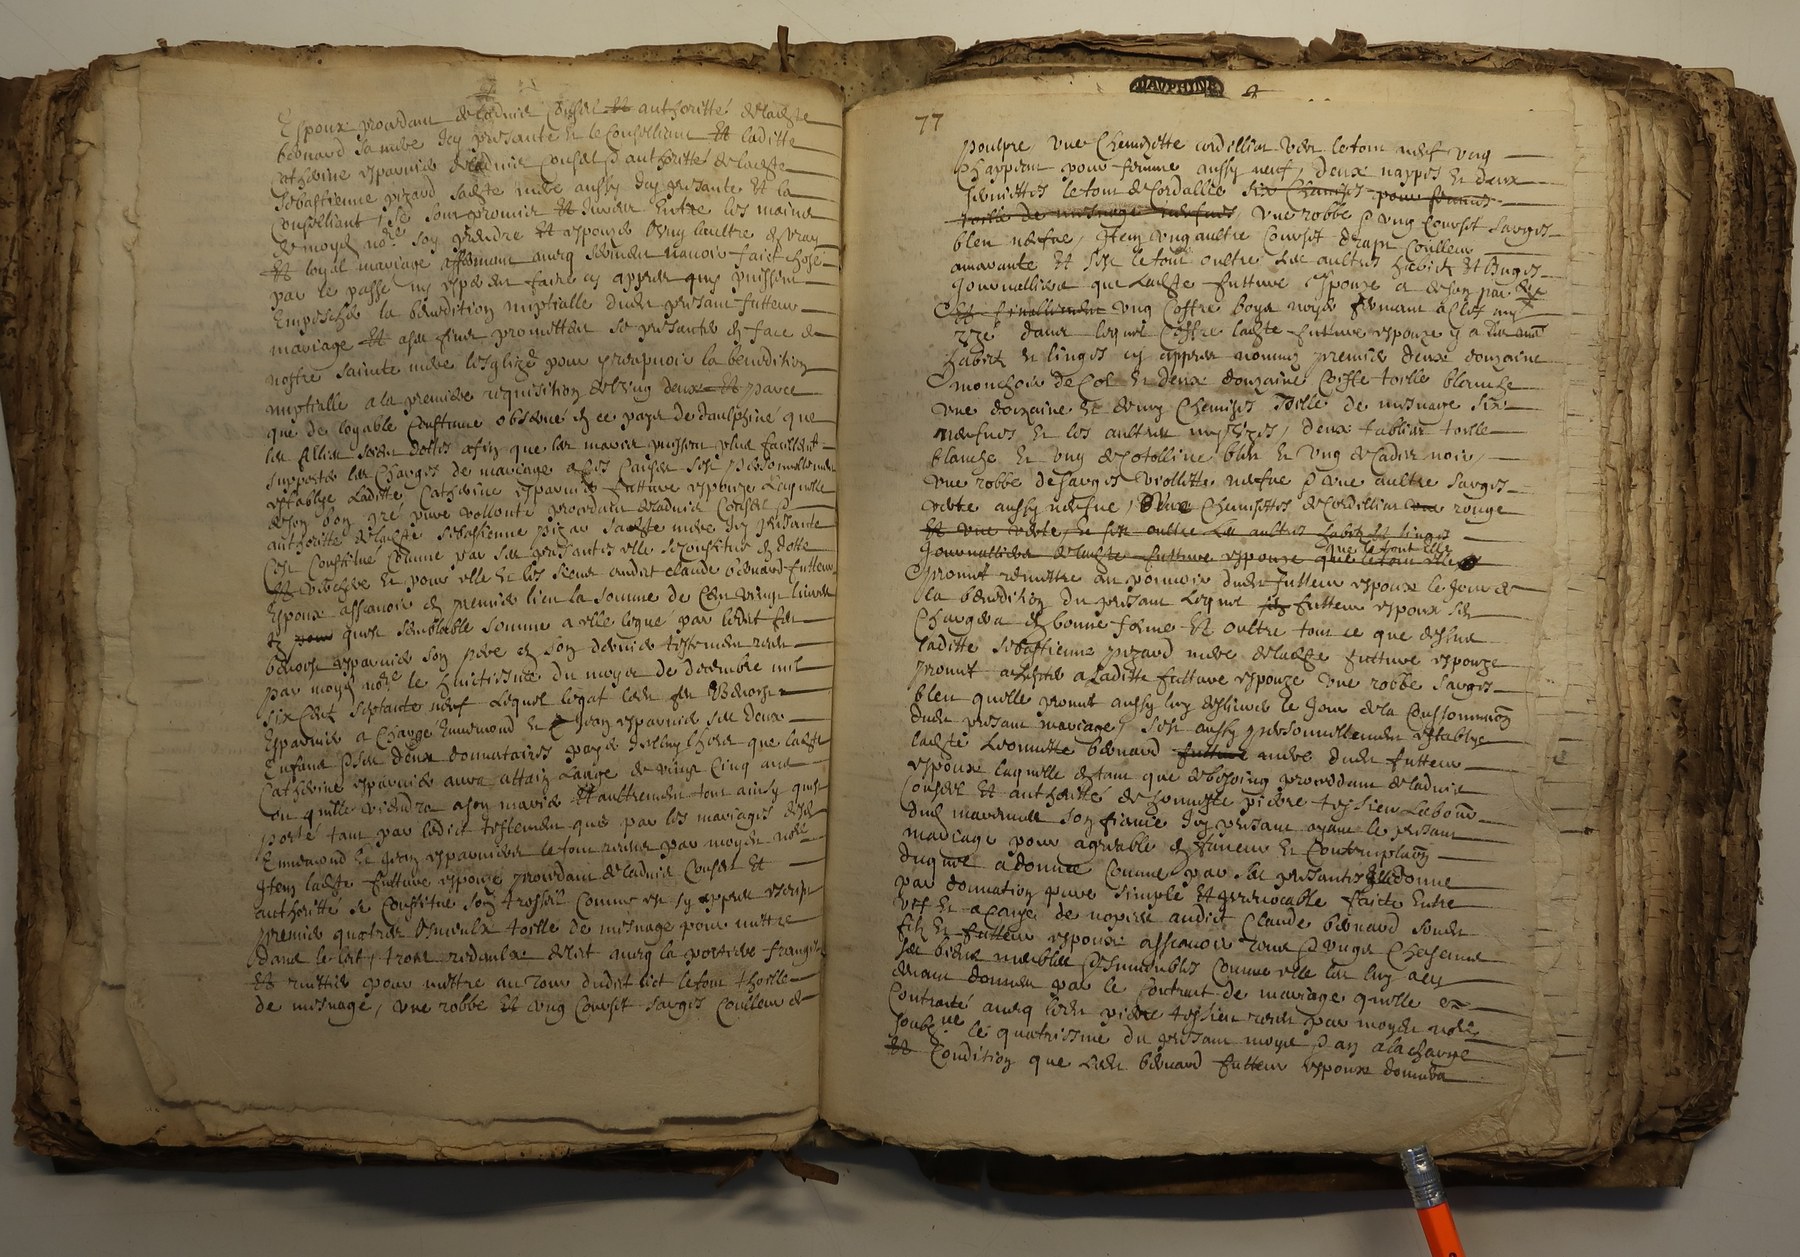 Espoux procedant de l'advis conseil et authoritté de ladite
bernard sa mere icy presante et le conseillant et laditte
catherine esparvier de l'advis conseil & authoritté de ladite
Sebastienne pizard sadite mere aussy icy presante et la
conseillant, se sont promis et jurés entre les mains
de moyd no.re soy prendre et espouzer l'ung l'aultre en vray
et loyal mariage affermant avoir serment n'avoir faict chose
par le passé ny esperer faire cy appres quy puissent
empescher la benedition nuptialle dudit presant futteur
mariage et a ses fins promettent se presanter en face de
nostre sainte mere l'esglize pour y recepvoir la benedition
nuptialle a la premiere requisition de l'ung deux et parce
que de loyable coustume observé en ce pays de daulphiné que
les filles soient dottés afin que les maris puissent plus facillemt
supporter les charges de mariage a ces causes s'est personnellement
establye laditte Catherine esparvier future espouze laquelle
de son bon gré pure vollonté procedant de l'advis conseil &
authoritte de ladite sebastienne pizar sadite mere icy presante
c'est constitué comme par ses presantes elle se constitue en dotte
et verchere et pour elle et les siens audict claude bernard futteur
Espoux assavoir en premier lieu la somme de cent vingt livres
quer semblable somme a elle legué par ledit feu
benoist esparvier son pere en son dernier testement receu
par moyd no.re le huictiesme du moys de decembre mil
six cent septante neuf lequel legat ledit feu Benoist
Esparvier a chargé Ennemond et Jean esparvier ses deux
Enfans & ses deux donnataires payer des lors que ladite
Catherine esparvier aura attaint l'aage de vingt cinq ans
ou qu'elle viendra a son marier et aultrement tout ainsy quest
porté tant par ledict testement que par les mariages desd
Ennemond et Jean esparvier le tout receu par moyd no.re
Item ladite future espouze procedant de l'advis conseil et
authoritté se constitue son trossel comme est cy appres escript
premier quatres linseulx toille de mesnage pour mettre
dans le lict, trois rideaulx de lict avec la pertiere frangés
et pour mettre au tour dudit lict le tout thoille
de mesnage, une robbe et ung coursit sarges coulleur de
DAUPHINE
77
poulpre une chemisette cordillier vert le tout neuf ung
chappeau pour femme aussy neuf, deux nappes et deux
serviettes le tout de cordallie six chemises pour femme
toille de mesnage neufves, une robbe & ung coursit sarges
bleu neufve, Item ung aultre coursit drap coulleur
amarante et s'est le tout oultre les aultres habits et linges
journalliers que ladite future Espouze a de son par
Et finallement ung coffre boys noyer fermant a clef my
uzé dans lequel coffre ladite future espouze y a
habits et linges cy appres nommés premier deux douzaine
mouchoir de col et deux douzaine coiffe toille blanche
une douzaine et demy chemises toille de mesnage six
neufves et les aultres my uzés, deux tabliers toille
blanche et ung de cotolline bleu et ung de cadis noir,
une robbe de sarges viollette neufve & une aultre sarges
verte aussy neufve, deux chemisettes de cordillier rouge
et une verte, et s'est oultre les aultres habits et linges
journalliers de ladite future espouze que le tout elle
promet remettre au pouvoir dudit futteur espoux le jour de
la benedition du presant lequel futteur espoux s'en
chargera en bonne forme et oultre tout ce que dessus
laditte sebastienne pizard mere de ladite future espouze
promet a laditte future espouze une robbe sarges
bleu quelle promet aussy luy deslivrer le jour de la consommaon
dudit presant mariage, s'est aussy personnellement establye
ladite Leonnette bernard mere dudit futteur
espoux laquelle en tant que de besoing procedant de l'advis
conseil et authoritté de honneste pierre teyssieu labour
dud son fiancé icy presant ayant le presant
mariage pour agreable en faveur et contemplaon
duquel a donné comme par ses presantes elle donne
par donnation pure simple et irrevocable faicte entre
vifs et a cause de nopces audict Claude bernard sondit
filz et futteur espoux assavoir
ses biens meubles & immeubles comme elle les luy a cy
devant donnés par le contract de mariage quelle a
contraité avec ledit pierre teyssieu receu par moyd no.re
soubz.ne le quatriesme du presant moys & an a la charge
et condition que ledit bernard futteur espoux donnera